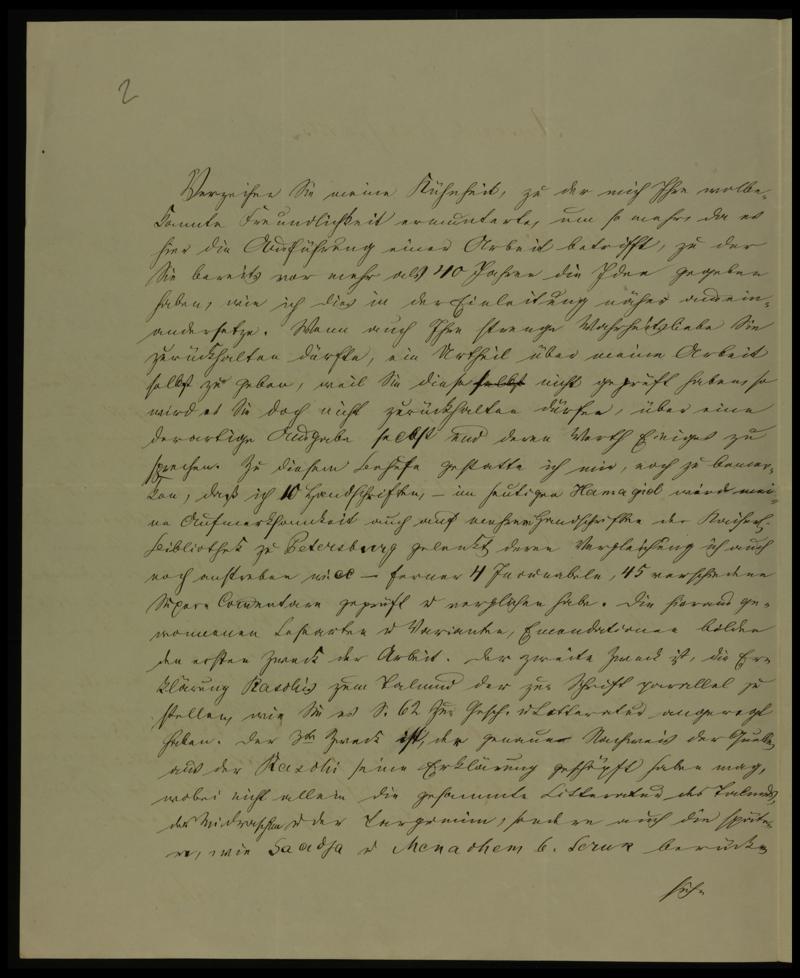 2
Verzeihen Sie meine Kühnheit, zu der mich Ihre wolbe-
kannte Freundlichkeit ermunterte, um so mehr, da es
hier die Ausführung einer Arbeit betrifft, zu der
Sie bereits vor mehr als 40 Jahren die Idee gegeben
haben, wie ich dies in der Einleitung näher ausein-
andersetze. Wenn auch Ihre strenge Wahrheitsliebe Sie
zurückhalten dürfte, ein Urtheil über meine Arbeit
selbst zu geben, weil Sie diese selbst nicht geprüft haben, so
wird es Sie doch nicht zurückhalten dürfen, über eine
derartige Ausgabe selbst und deren Werth Einiges zu
sprechen. Zu diesem Behufe gestatte ich mir, noch zu bemer-
ken, daß ich 10 Handschriften, – im heutigen Hamagid wird mei-
ne Aufmerksamkeit auch auf mehrere Handschriften der Kaiserl.
Bibliothek zu Petersburg gelenkt deren Vergleichung ich auch
noch anstreben will – ferner 4 Incunabeln, 45 verschiedene
Super Comentare geprüft u verglichen habe. Die hieraus ge-
wonnenen Lesearten u Varianten, Emendationen bilden
den ersten Zweck der Arbeit. Der zweite Zweck ist, die Er-
klärung Raschis zum Talmud der zur Schrift parallel zu
stellen, wie Sie es S. 62 Zur Gesch. u Litteratur angeregt
haben. Der 3te Zweck ist, der genaue Nachweis der Quellen
aus der Raschi seine Erklärung geschöpft haben mag,
wobei nicht allein die gesammte Litteratur des Talmuds,
der Midraschim u der Targumim, sondern auch die späte-
re, wie Saadja u Menachem b. Seruk berück-
sich-